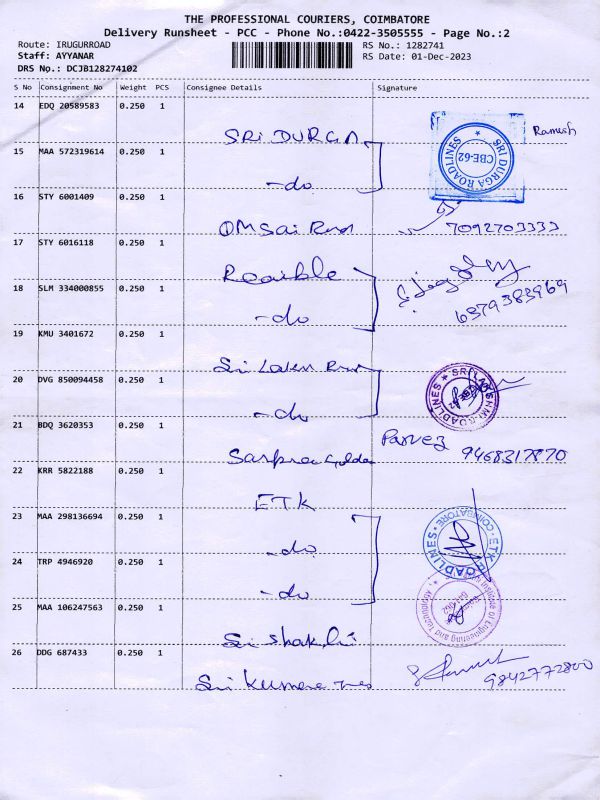 THE PROFESSIONAL COURIERS, COIMBATORE
Delivery Runsheet - PCC - Phone No.:0422-3505555 - Page No.:2
Route: IRUGURROAD
RS No.: 1282741
Staff: AYYANAR
RS Date: 01-Dec-2023
DRS No.: DCJB128274102
S No Consignment No Weight PCS Consignee Details Signature
14 EDQ 20589583 0.250 1
SRI DURGA
Ramesh
SRI DURGA ROADLINES
CBE-62
15 MAA 572319614 0.250 1
-do
16 STY 6001409 0.250 1
OM Sai
7092703333
17 STY 6016118 0.250 1
18 SLM 334000855 0.250 1
-do
6379383969
19 KMU 3401672 0.250 1
Sri
SRI LAKSHMI ROADLINES
20 DVG 850094458 0.250 1
-do
21 BDQ 3620353 0.250 1
Parvez
9468317870
22 KRR 5822188 0.250 1
ETK
23 MAA 298136694 0.250 1
-do
ETK ROADLINES
COIMBATORE
24 TRP 4946920 0.250 1
-do
25 MAA 106247563 0.250 1
Sri Shakthi
Institute of Engineering and Technology
26 DDG 687433 0.250 1
Sri Kumaran
9842772800